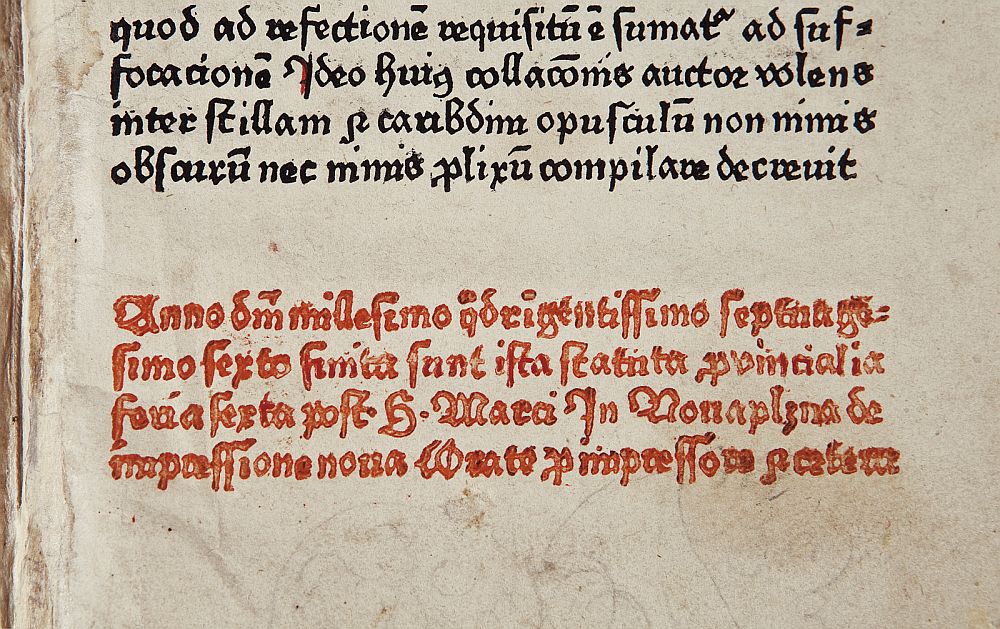 quod ad refectionē requisitū ē sumat᷑ ad suf⸗
focacionē Ideo huiꝰ collacōnis auctor volens
inter scillam ⁊ caribdim opusculū non nimis
obscurū nec nimis ꝓlixū compilare decreuit
Anno dm̄ milesimo q̄drigentissimo septuage⸗
simo sexto finita sunt ista statuta ꝓuincialia
feria sexta post S. Marci In Nouaplzna de
impressione noua Orate ꝓ impressore ⁊ cetera